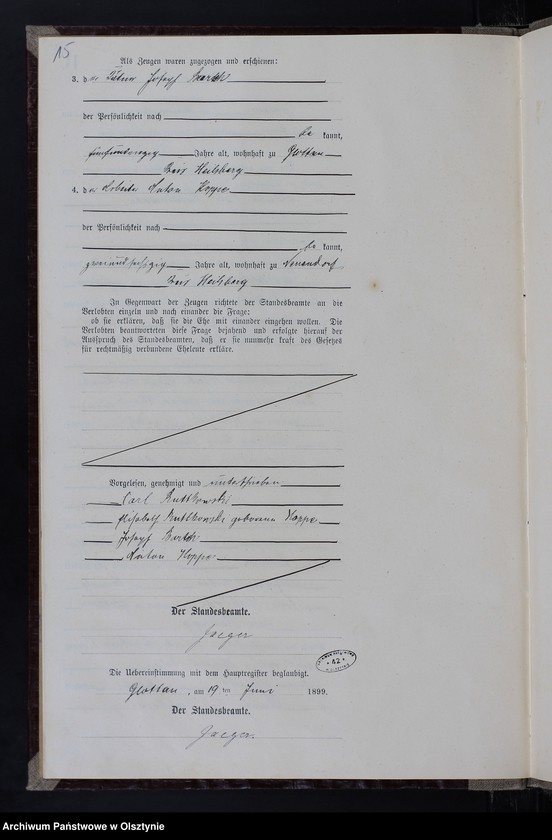 15
Als Zeugen waren zugezogen und erschienen:
3. der Joseph Bartsch
der Persönlichkeit nach
be kannt,
Jahre alt, wohnhaft zu Glottau
Kreis Heilsberg
4. der Arbeiter Anton Hoppe
der Persönlichkeit nach
be kannt,
zweiundsechzig Jahre alt, wohnhaft zu Neuendorf
Kreis Heilsberg
In Gegenwart der Zeugen richtete der Standesbeamte an die
Verlobten einzeln und nach einander die Frage:
ob sie erklären, daß sie die Ehe mit einander eingehen wollen. Die
Verlobten beantworteten diese Frage bejahend und erfolgte hierauf der
Ausspruch des Standesbeamten, daß er sie nunmehr kraft des Gesetzes
für rechtmäßig verbundene Eheleute erkläre.
Vorgelesen, genehmigt und unterschrieben
Carl Ruttkowski
Elisabeth Ruttkowski geborene Hoppe
Joseph Bartsch
Anton Hoppe
Der Standesbeamte.
Jaeger
42
Die Uebereinstimmung mit dem Hauptregister beglaubigt.
Glottau, am 19 ten Juni 1899.
Der Standesbeamte.
Jaeger.
Archiwum Państwowe w Olsztynie